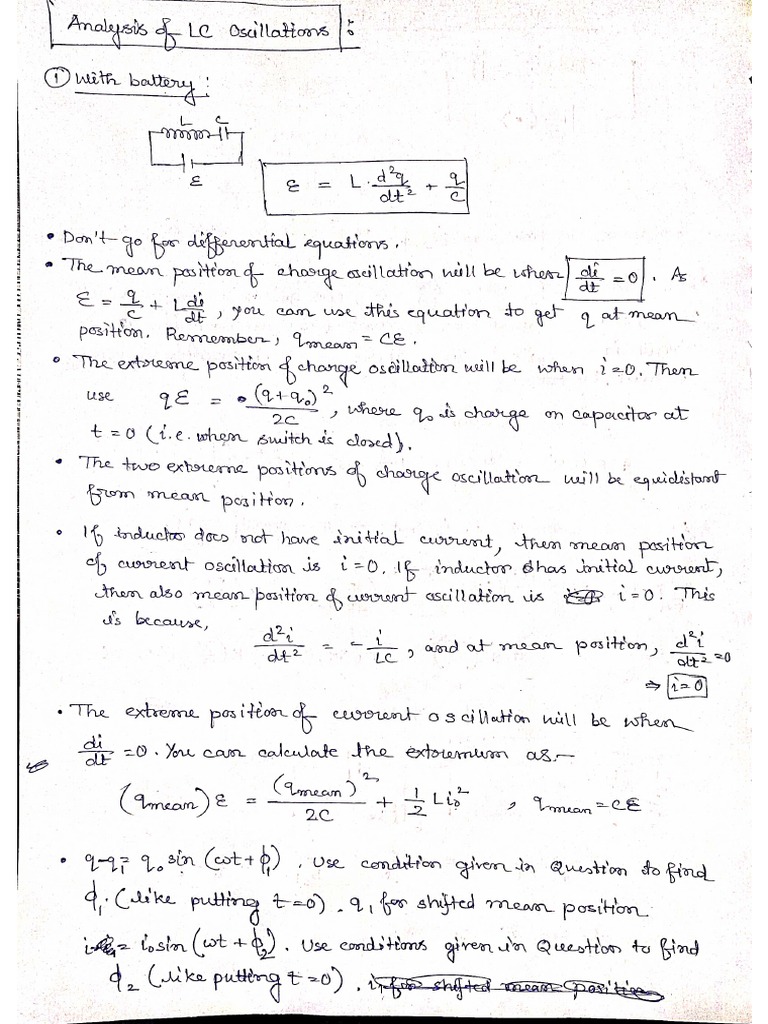 Analysis of LC Oscillations :
① With battery :
L C
ε
ε = L · d²q/dt² + q/C
• Don't go for differential equations.
• The mean position of charge oscillation will be when di/dt = 0 . As
ε = q/C + L di/dt , you can use this equation to get q at mean
position. Remember, qmean = Cε .
• The extreme position of charge oscillation will be when i=0. Then
use qε = (q+q₀)²/2C , where q₀ is charge on capacitor at
t=0 (i.e. when switch is closed).
• The two extreme positions of charge oscillation will be equidistant
from mean position.
• If inductor does not have initial current, then mean position
of current oscillation is i=0. If inductor has initial current,
then also mean position of current oscillation is i=0. This
is because,
d²i/dt² = - i/LC , and at mean position, d²i/dt² = 0
⇒ i=0
• The extreme position of current oscillation will be when
di/dt = 0. You can calculate the extremum as :-
(qmean) ε = (qmean)²/2C + 1/2 Li₀² , qmean = Cε
• q-q₁ = q₀ sin (ωt + ϕ₁) . Use condition given in Question to find
ϕ₁. (like putting t=0) . q₁ for shifted mean position
i = i₀ sin (ωt + ϕ₂) . Use conditions given in Question to find
ϕ₂ (like putting t=0) .